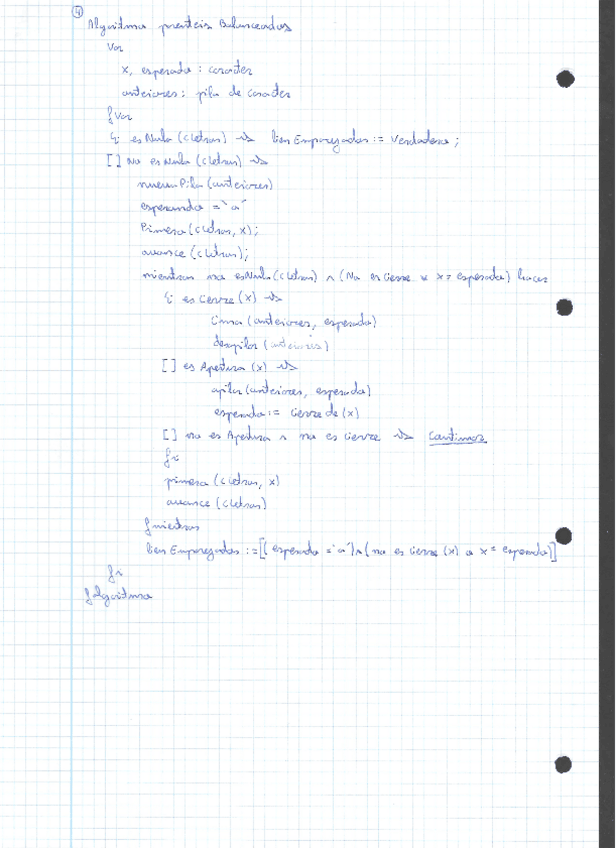 4
Algoritmo parentesis Balanceados
Var
x, esperado : caracter
anteriores: pila de caracter
fVar
Si esNulo (cLetras) → bien Emparejados := Verdadero;
[] No esNula (cLetras) →
nuevaPila (anteriores)
esperando = 'a'
Primero (cLetras, x);
avance (cLetras);
mientras no esNula (cLetras) ∧ (No es Cierre o x = esperado) hacer
Si es Cierre (x) →
cima (anteriores, esperado)
desapilar (anteriores)
[] es Apertura (x) →
apilar (anteriores, esperado)
esperado := Cierre de (x)
[] no es Apertura ∧ no es cierre → Continuar
fsi
primero (cLetras, x)
avance (cLetras)
fmientras
bien Emparejados := [(esperado = 'a') ∧ (no es Cierre (x) o x = esperado)]
fsi
fAlgoritmo